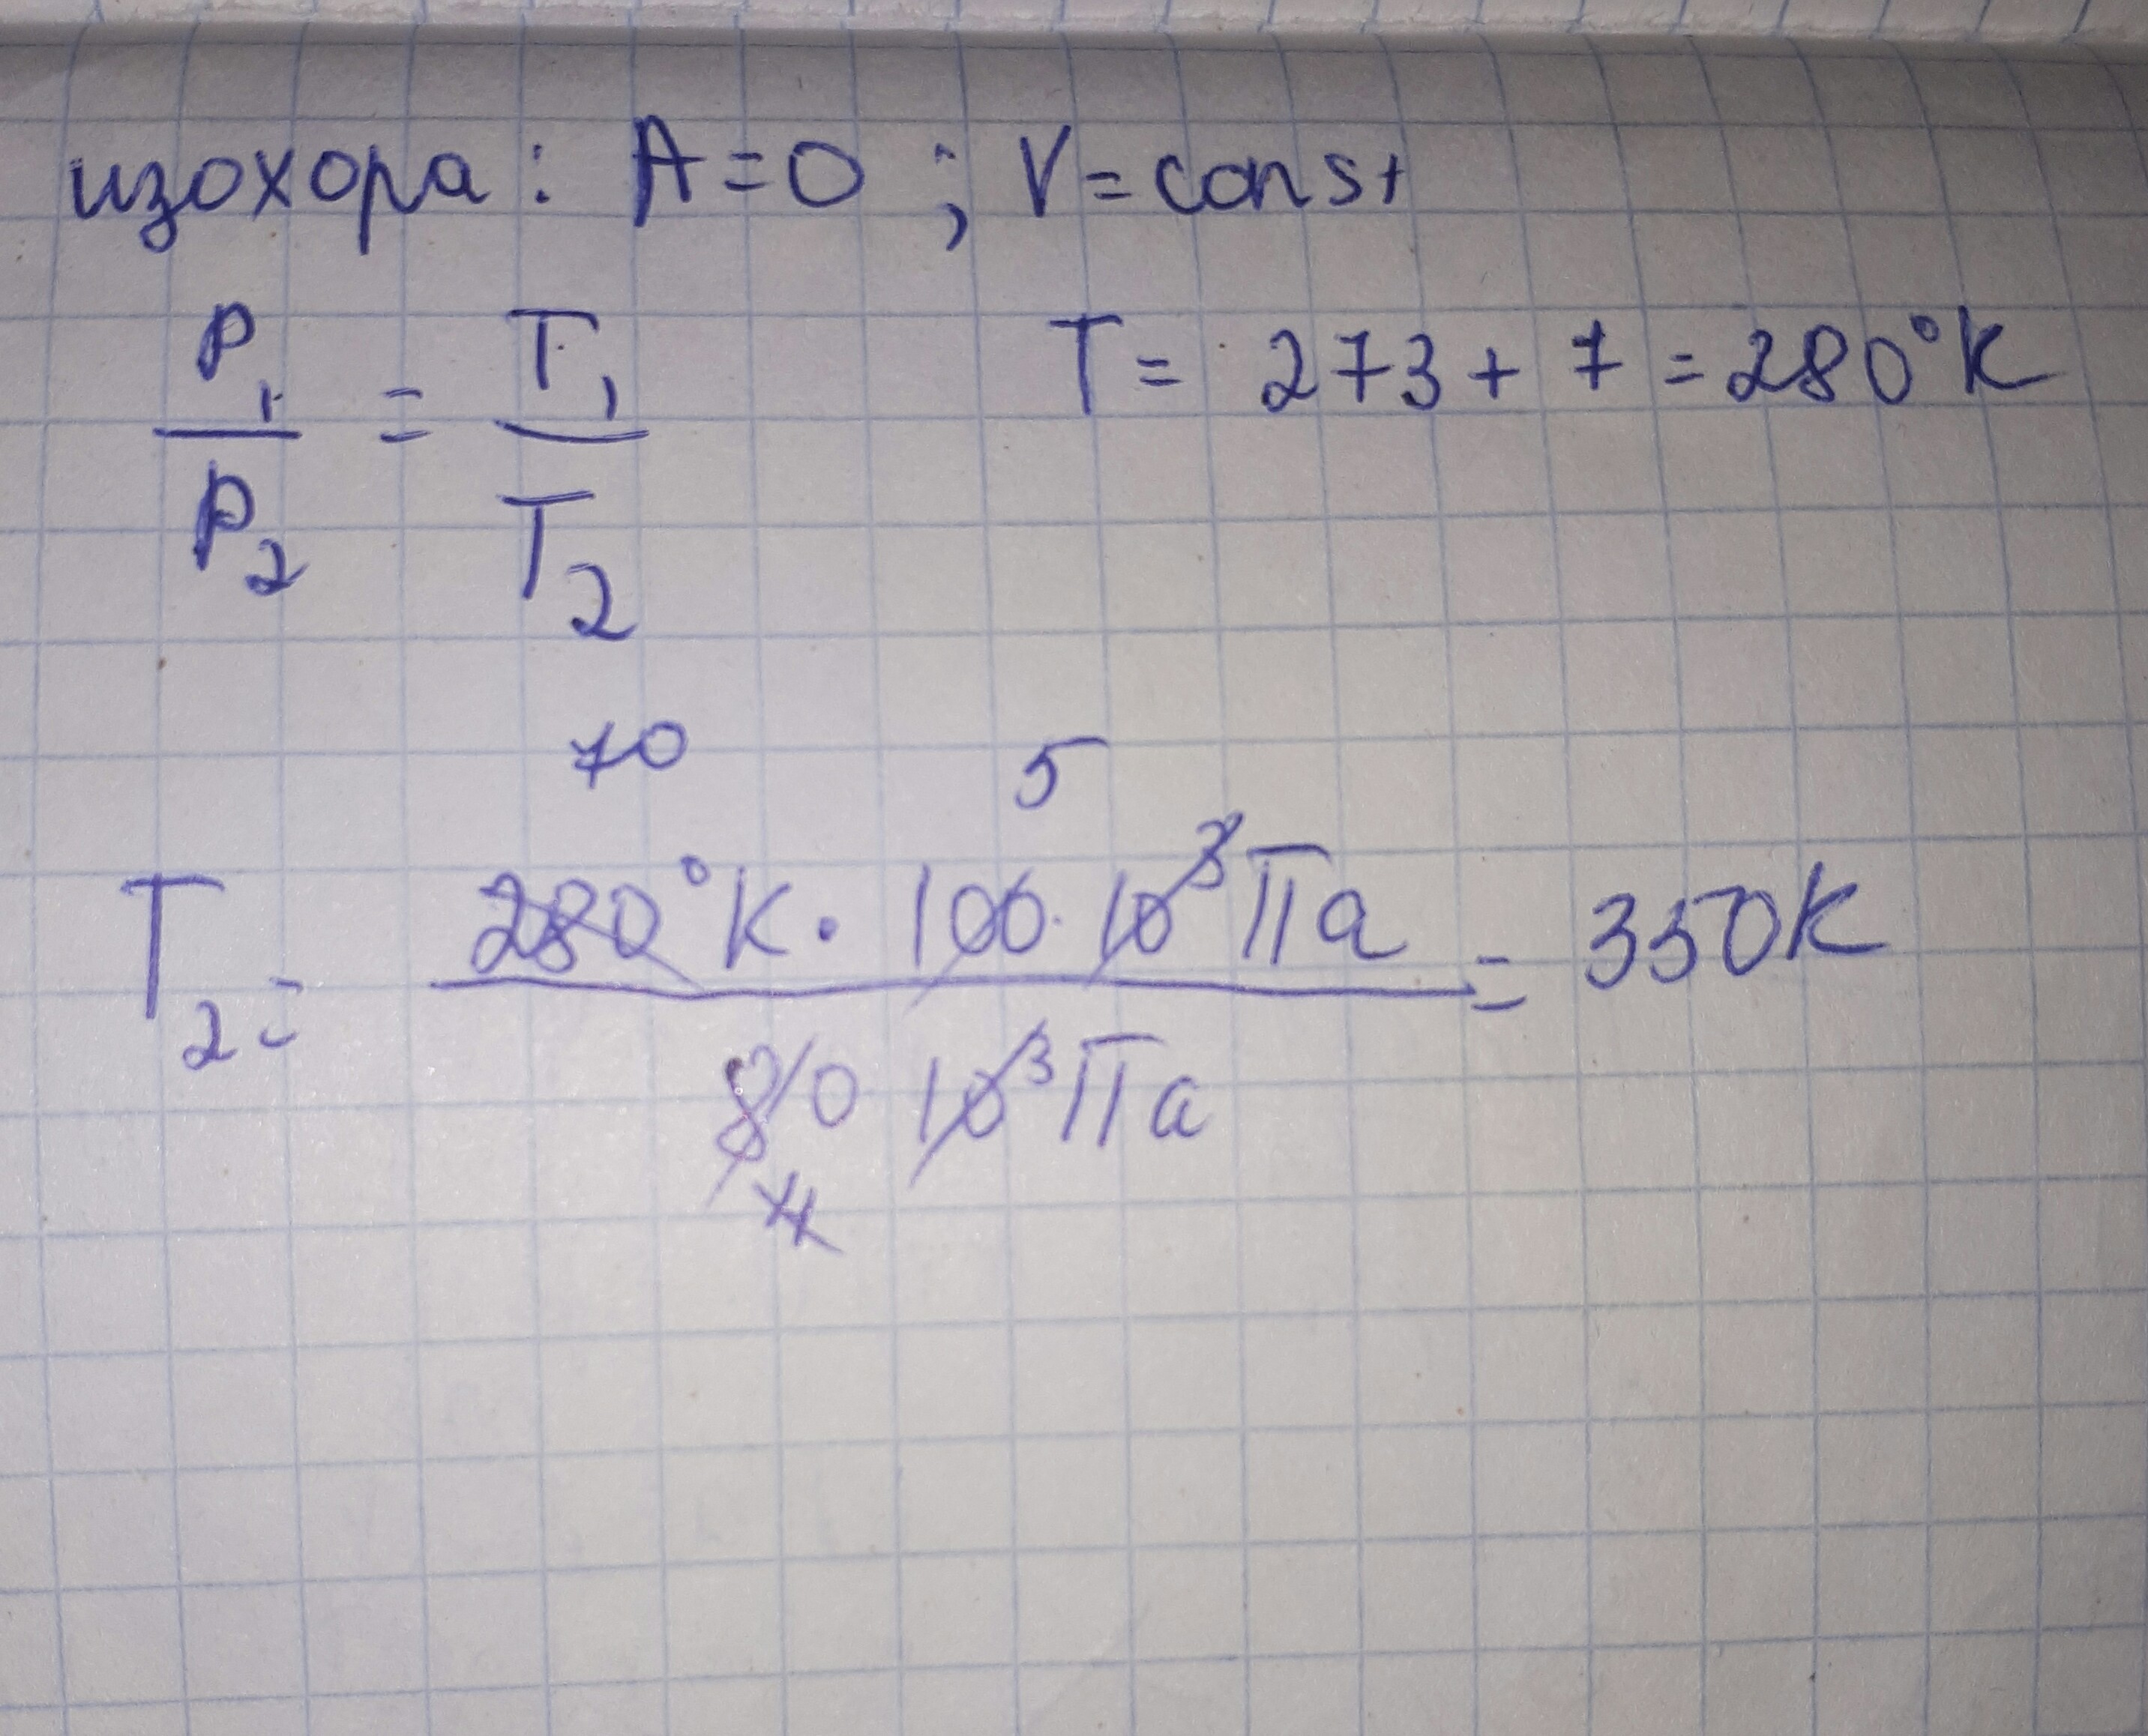 изохора: A=0 ; V=const
P₁/P₂ = T₁/T₂ T= 273+7=280°K
70 5
T₂= 280°K·100·10³Па = 350K
80 10³Па
4